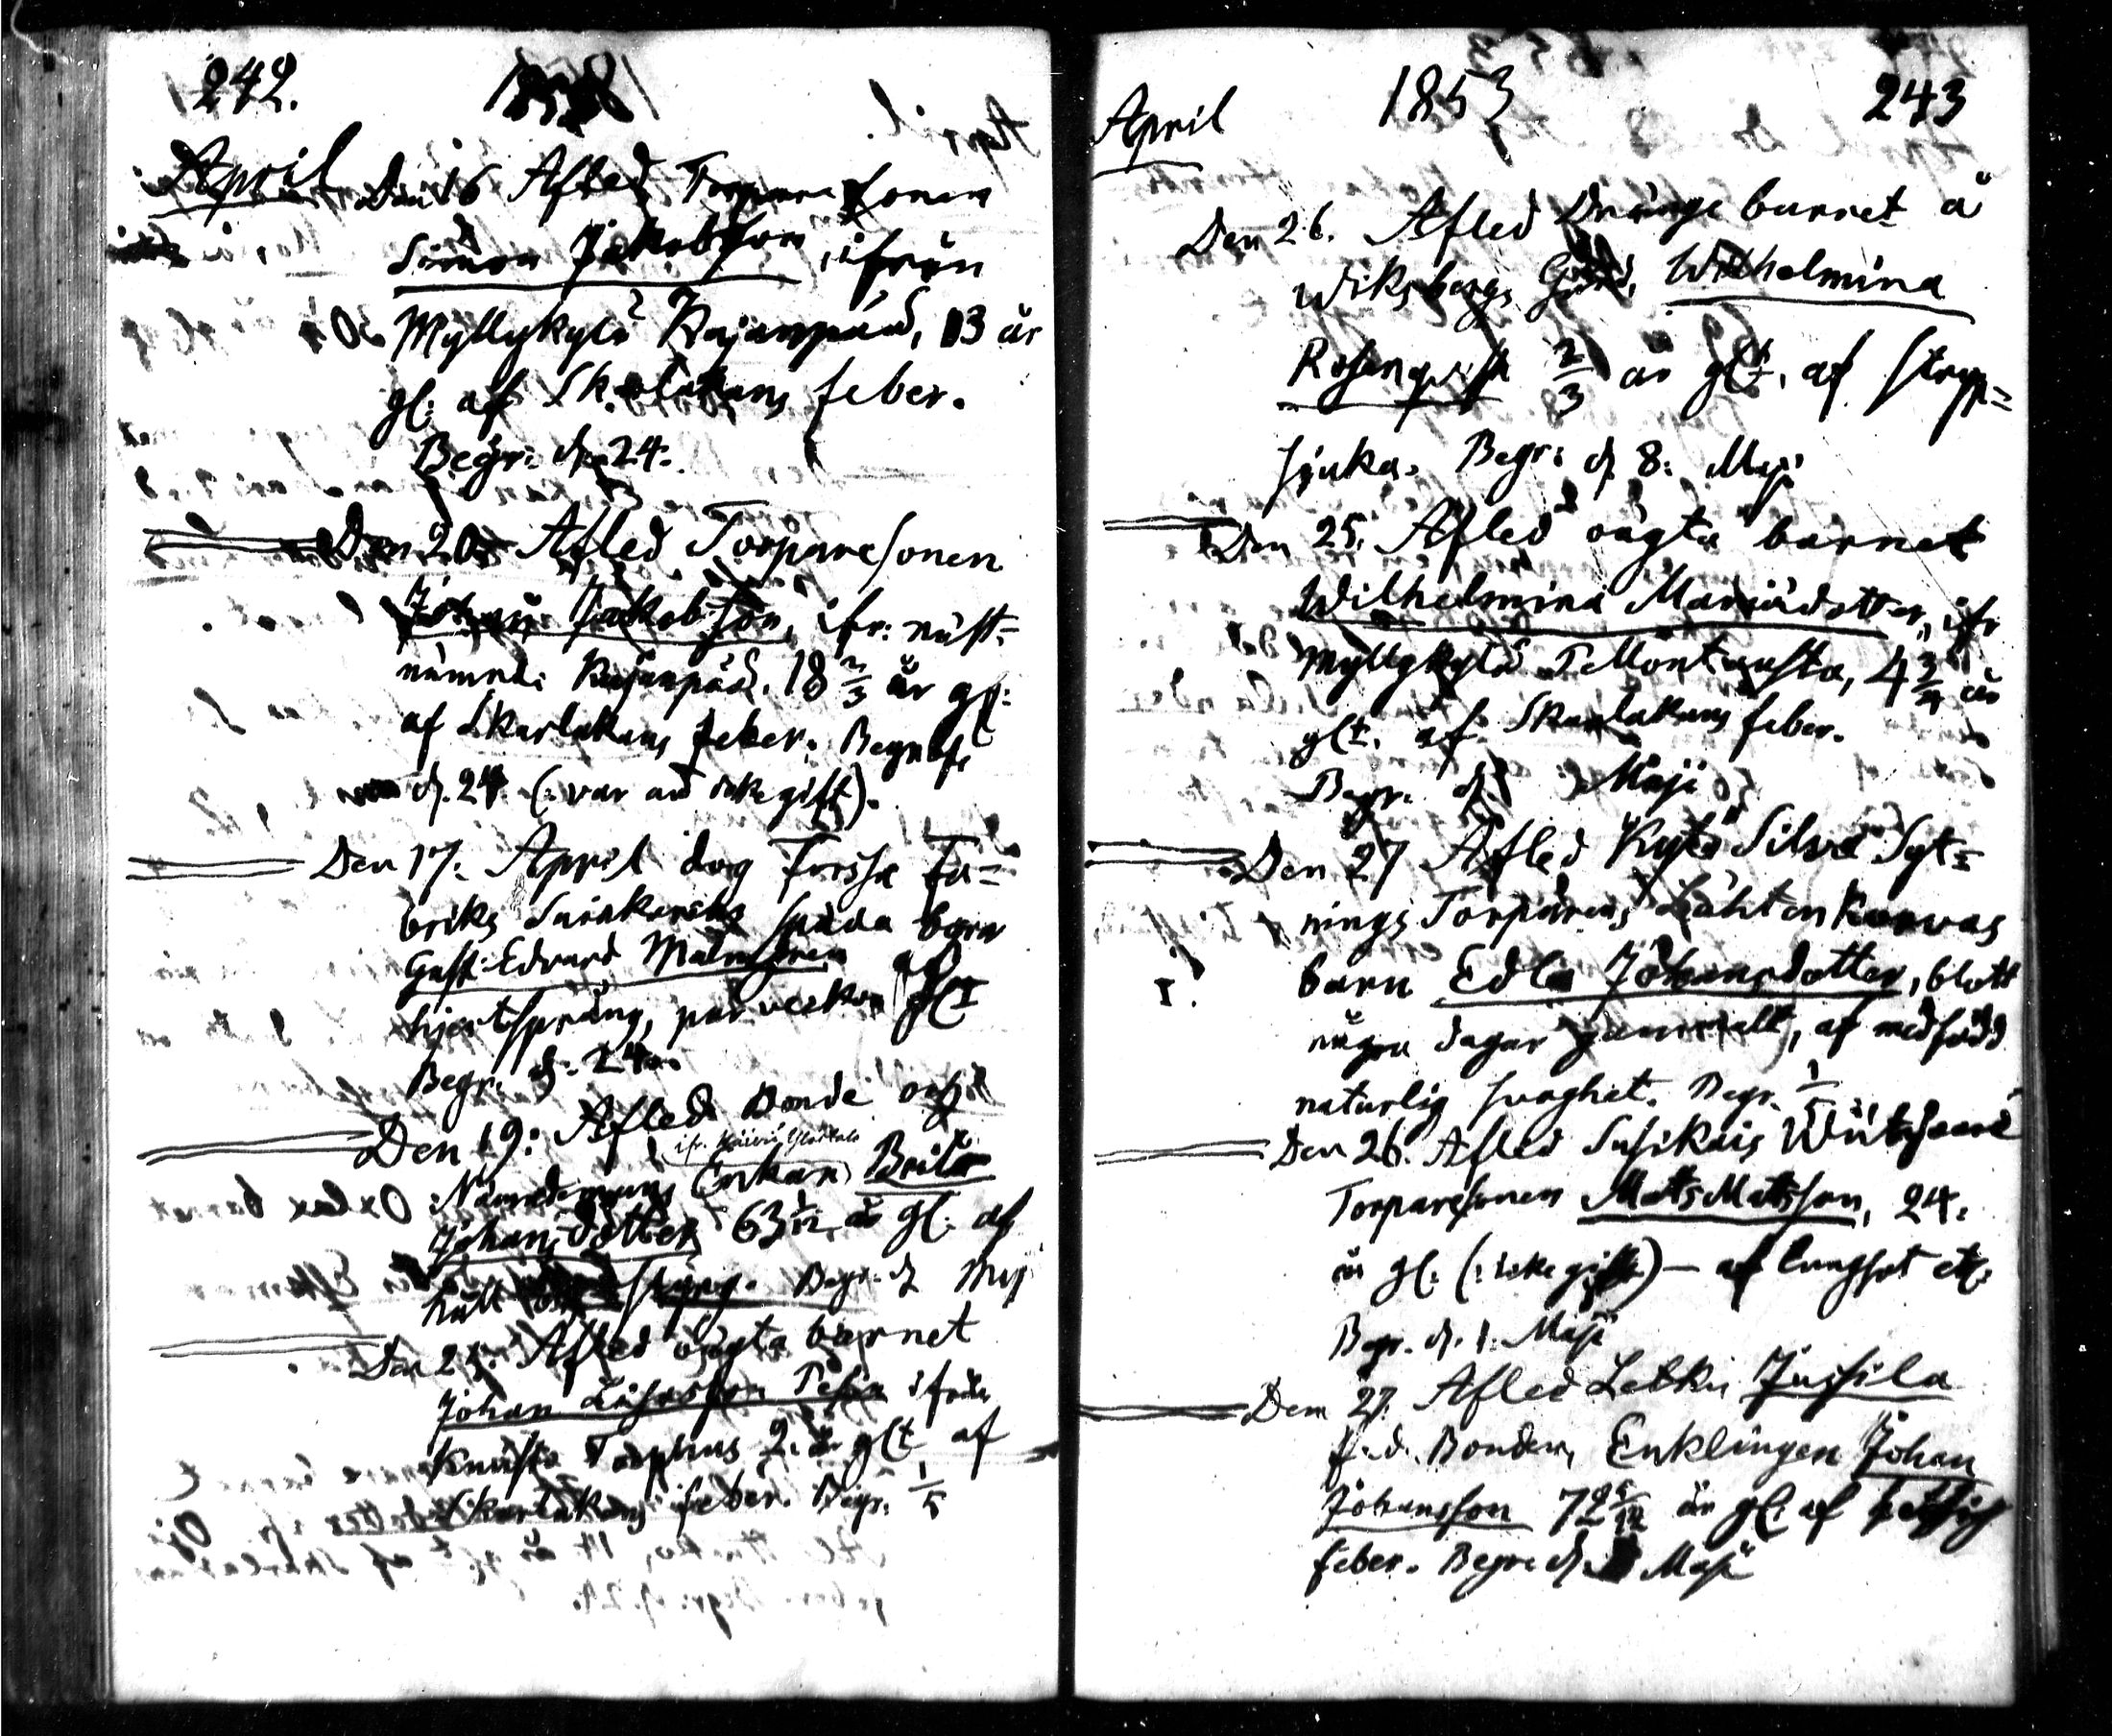 242.
April
Den 16 Afled Torpare sonen
Simon Jakobsson, ifrån
Myllykylä Rajanpää, 13 år
gl: af Skarlakans feber.
Begr: d. 24.
Den 20 Afled Torparesonen
Johan Jakobsson, ifr: näst=
nämnde Rajanpää. 18 2/3 år gl:
af Skarlakans feber. Begrofs
d. 24 (: var ei ikke gift).
Den 17: April dog Forssa Fa=
briks späda barn
Gust: Edvard Malmgren af
hjertsprång, par veckor glt
Begr: d: 24.
Den 19: Afled Bonde och
ifr.
Nämndemans Enkan Brita
Johansdotter 63 1/12 år gl: af
håll styng. Begr. d Maj
Den 21: Afled oägta barnet
Johan ifrån
Torphus 2. år glt af
Skarlakans feber. Begr. 1/5
April 1853 243
Den 26. Afled Dränge barnet å
Wiksbergs Gård, Wilhelmina
Rosenqvist 2/3 år glt. af stryp=
sjuka. Begr: d 8: Maji
Den 25: Afled oägta barnet
Wilhelmina Mariädotter, ifr
Myllykylä 4 3/4 år
glt. af Skarlakans feber.
Begr. d. Maji
Den 27 Afled Kytö Silvä Syt=
nings Torparens
barn Edla Johansdotter, blott
några dagar gammalt, af medfödd
naturlig svaghet. Begr. 1/5
Den 26. Afled Susikais
Torparesonen Matts Mattsson, 24.
år gl: (: icke gift) — af lungsot etc:
Begr. d. 1. Maji
Den 27. Afled Letku Jussila
f. d. Bonden, Enklingen Johan
Johansson 72 5/12 år gl: af
feber. Begr. d. Maji